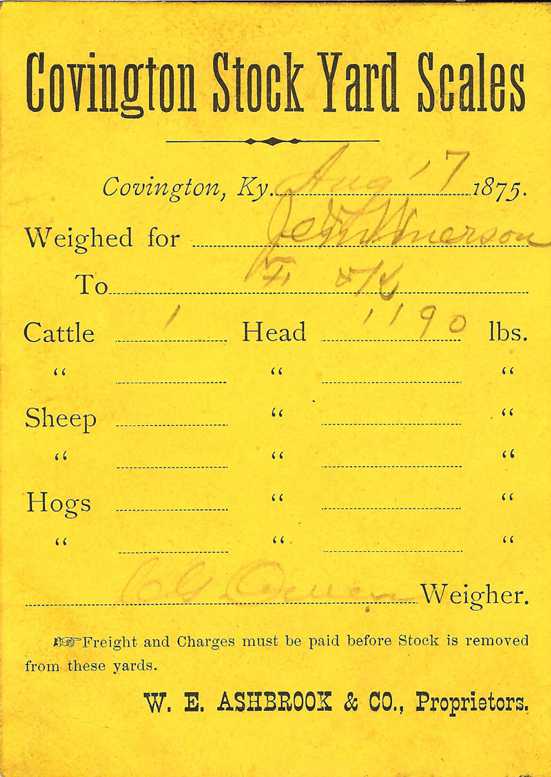 Covington Stock Yard Scales
Covington, Ky. Aug 17 1875.
Weighed for
To
Cattle 1 Head 1190 lbs.
“ “ “
Sheep “ “
“ “ “
Hogs “ “
“ “ “
C G Weigher.
☞Freight and Charges must be paid before Stock is removed
from these yards.
W. E. ASHBROOK & CO., Proprietors.